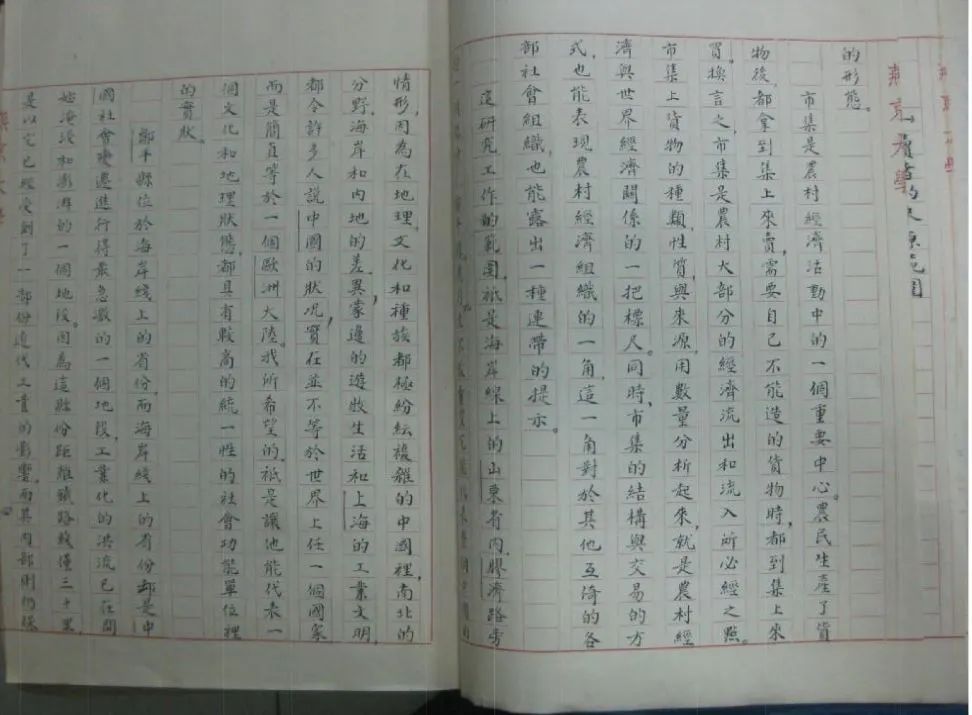 的形態。
市集是農村經濟活動中的一個重要中心。農民生產了貨
物後，都拿到集上來賣，需要自己不能造的貨物時，都到集上來
買。換言之，市集是農村大部分的經濟流出和流入所必經之點。
市集上貨物的種類，性質，與來源，用數量分析起來，就是農村經
濟與世界經濟關係的一把標尺。同時，市集的結構與交易的方
式，也能表現農村經濟組織的一角，這一角對於其他互倚的各
部社會組織，也能露出一種連帶的提示。
這研究工作的範圍，祇是海岸線上的山東省內，膠濟路旁
情形，因為在地理，文化和種族都極紛紜複雜的中國裡，南北的
分野，海岸和內地的差異，蒙邊的遊牧生活和上海的工業文明，
都令許多人說中國的狀況，實在並不等於世界上任一個國家
而是簡直等於一個歐洲大陸。我所希望的，祇是讓他能代表一
個文化和地理狀態，都具有較高的統一性的社會功能單位裡
的實狀。
鄒平縣位於海岸綫上的省份，而海岸綫上的省份却是中
國社會變遷進行得最急激的一個地段，工業化的洪流已在開
始淹浸和澎湃的一個地段。因為這縣份距離鐵路線僅三十里，
是以它已經受到了一部份近代工業的影響，而其內部則仍保